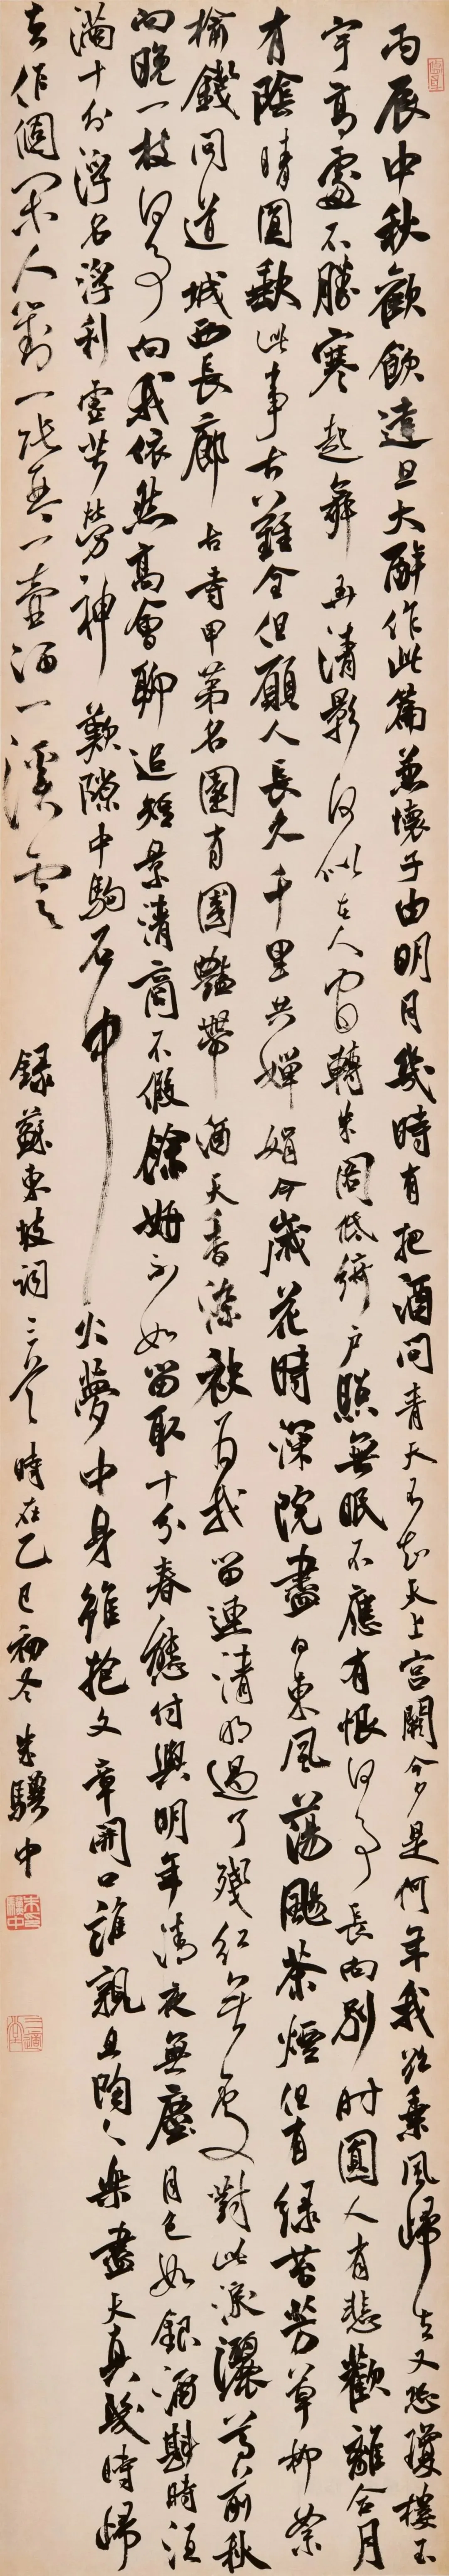 丙辰中秋歡飲達旦大醉作此篇兼懷子由明月幾時有把酒問青天不知天上宮闕今夕是何年我欲乘風歸去又恐瓊樓玉
宇高處不勝寒起舞弄清影何似在人間轉朱閣低綺戶照無眠不應有恨何事長向別時圓人有悲歡離合月
有陰晴圓缺此事古難全但願人長久千里共嬋娟今歲花時深院盡日東風蕩颺茶煙但有綠苔芳草柳絮
榆錢聞道城西長廊古寺甲第名園有國豔帶酒天香染袂為我留連清明過了殘紅無處對此淚灑尊前秋
向晚一枝何事向我依然高會聊追短景清商不假餘妍不如留取十分春態付與明年清夜無塵月色如銀酒斟時須
滿十分浮名浮利虛苦勞神歎隙中駒石中火夢中身雖抱文章開口誰親且陶陶樂盡天真幾時歸
去作個閑人對一張琴一壺酒一溪雲
錄蘇東坡詞三首 時在乙巳初冬 朱驥中